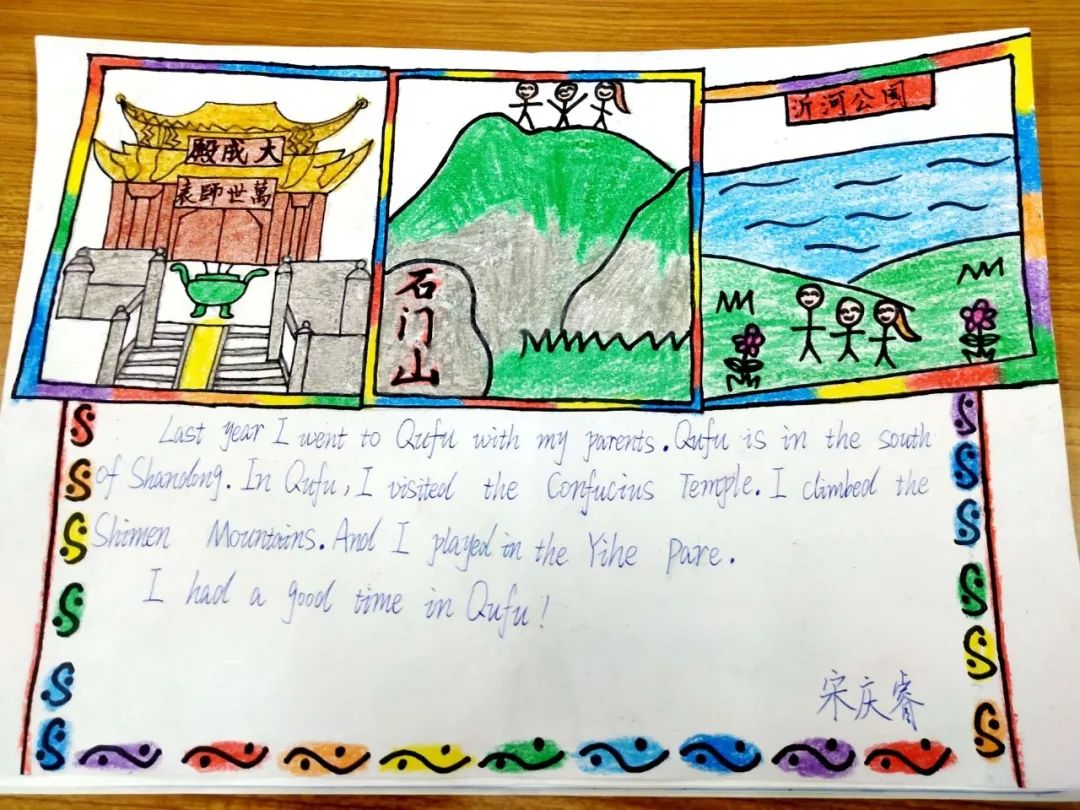 大成殿
萬世師表
石门山
沂河公园
Last year I went to Qufu with my parents. Qufu is in the south
of Shandong. In Qufu, I visited the Confucius Temple. I climbed the
Shimen Mountains. And I played in the Yihe Pare.
I had a good time in Qufu!
宋庆睿